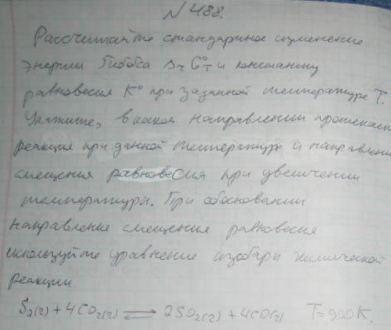 № 488.
Рассчитайте стандартное изменение
энергии Гиббса ΔrG°T и константу
равновесия K° при заданной температуре T.
Укажите, в каком направлении протекает
реакция при данной температуре и направлен
смещения равновесия при увеличении
температуры. При обосновании
направления смещения равновесия
используйте уравнение изобары химической
реакции
S2(г) + 4CO2(г) ⇌ 2SO2(г) + 4CO(г) T=900K.